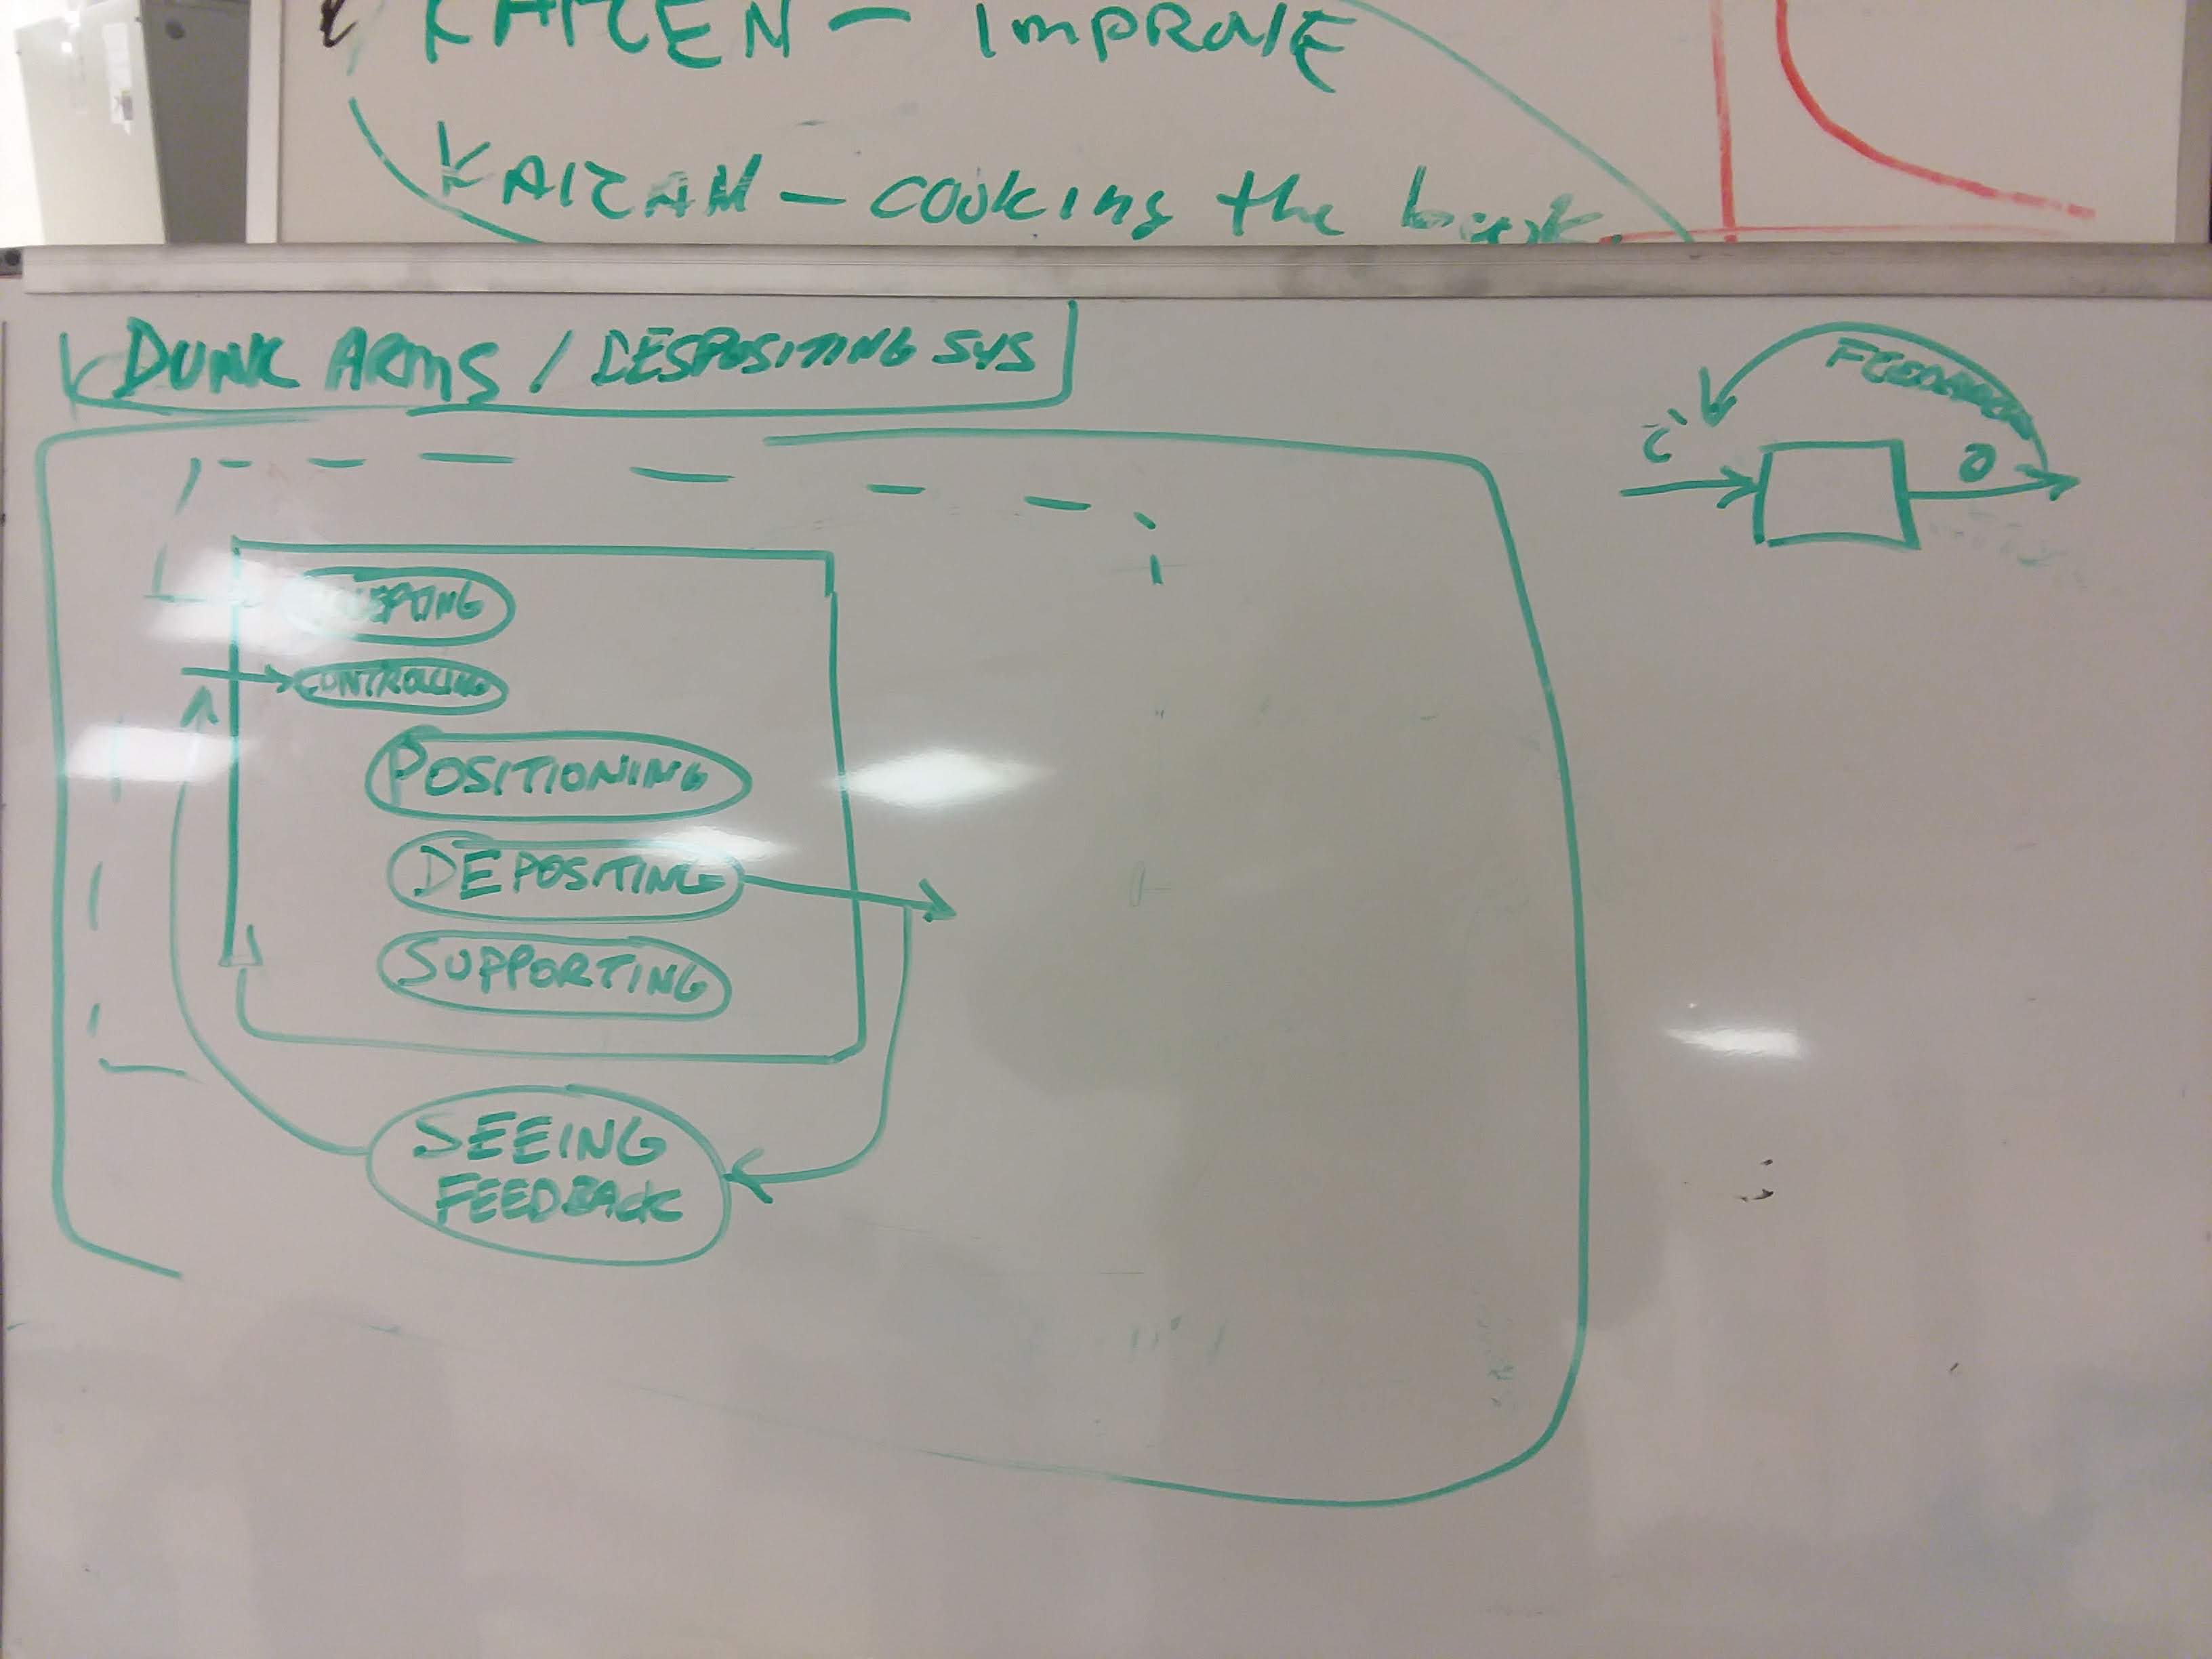 KAIZEN - IMPROVE
KAIZAM - COOKING the book.
DUNK ARMS / DESPOSITING SYS
FEEDBACK
i
O
CONTROLLING
POSITIONING
DEPOSITING
SUPPORTING
SEEING
FEEDBACK